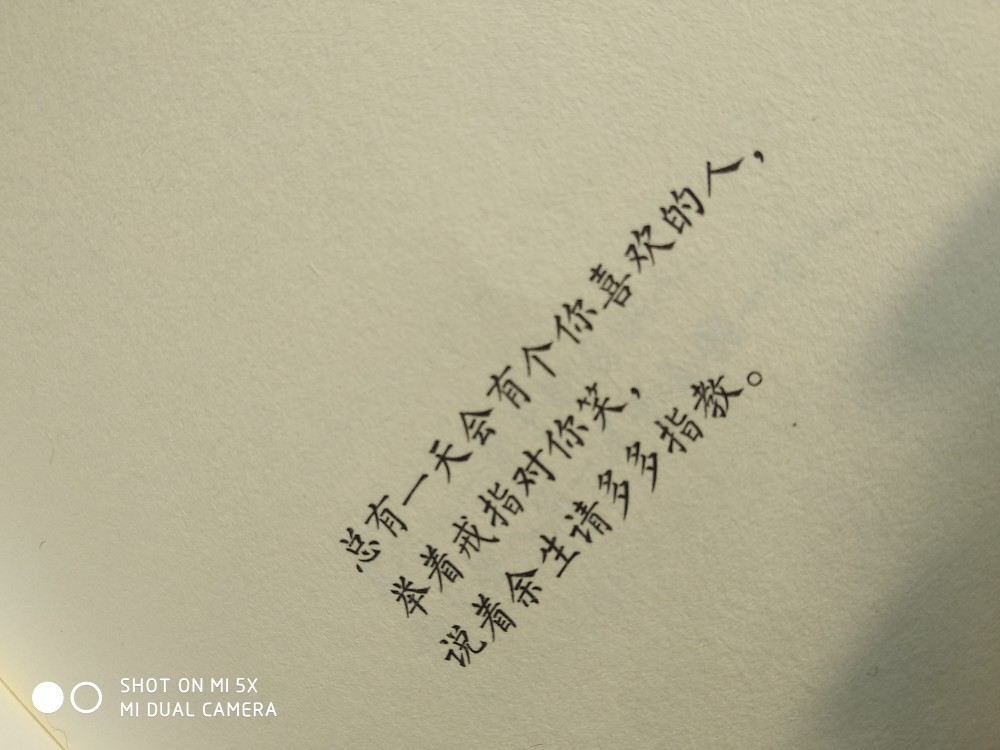 总有一天会有个你喜欢的人，
举着戒指对你笑，
说着余生请多多指教。
SHOT ON MI 5X
MI DUAL CAMERA